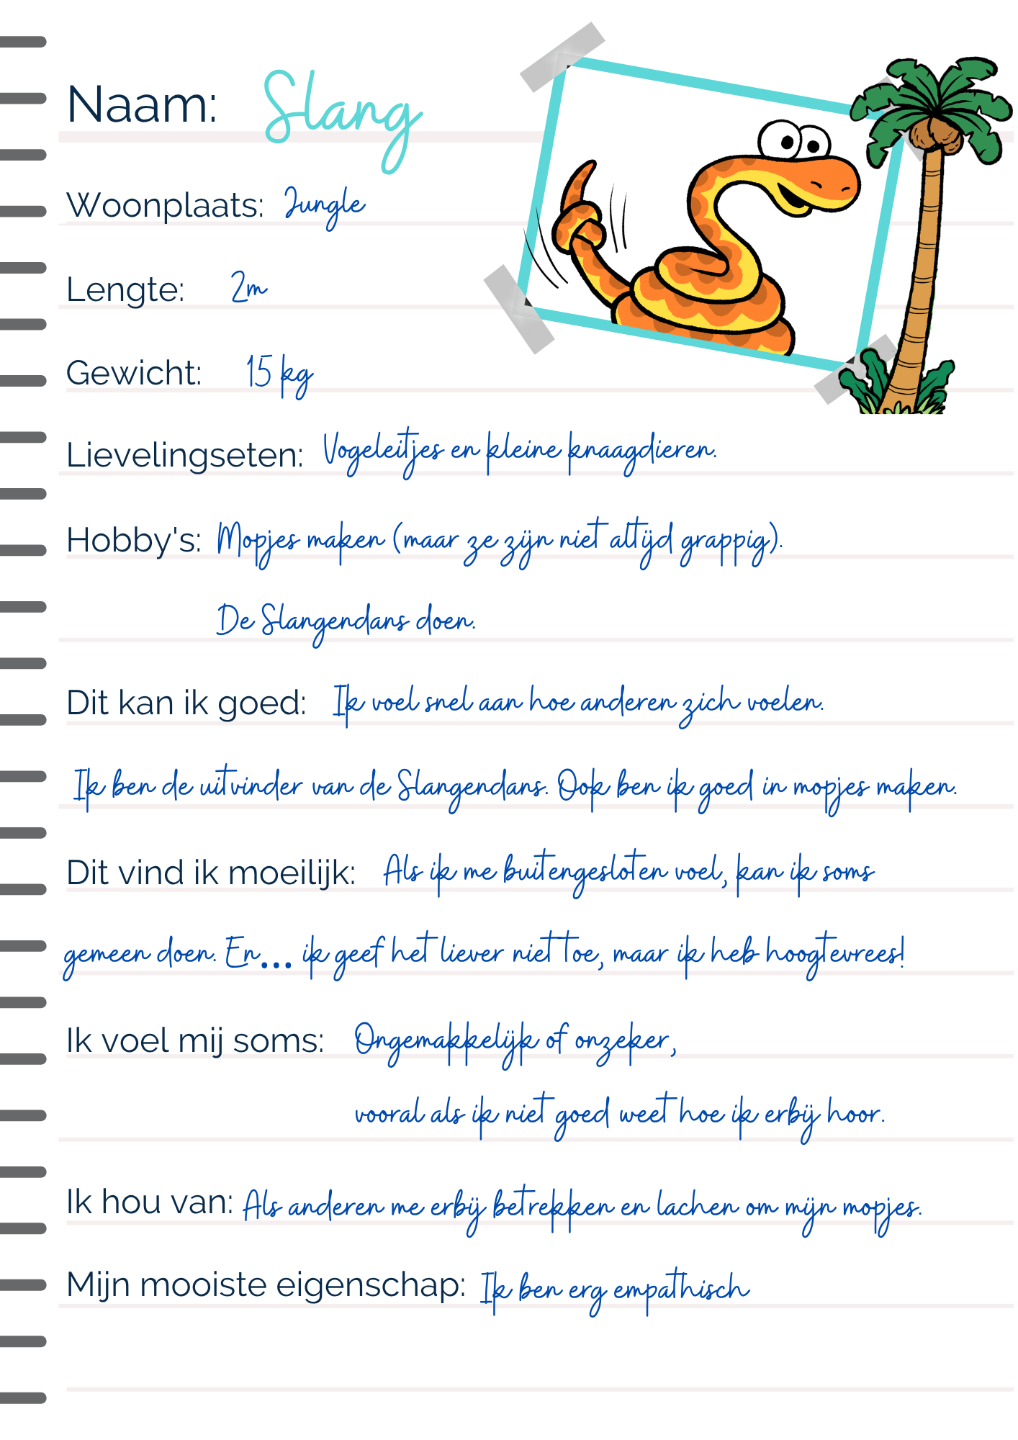 Naam: Slang
Woonplaats: Jungle
Lengte: 2m
Gewicht: 15 kg
Lievelingseten: Vogeleitjes en kleine knaagdieren.
Hobby's: Mopjes maken (maar ze zijn niet altijd grappig).
De Slangendans doen.
Dit kan ik goed: Ik voel snel aan hoe anderen zich voelen.
Ik ben de uitvinder van de Slangendans. Ook ben ik goed in mopjes maken.
Dit vind ik moeilijk: Als ik me buitengesloten voel, kan ik soms
gemeen doen. En... ik geef het liever niet toe, maar ik heb hoogtevrees!
Ik voel mij soms: Ongemakkelijk of onzeker,
vooral als ik niet goed weet hoe ik erbij hoor.
Ik hou van: Als anderen me erbij betrekken en lachen om mijn mopjes.
Mijn mooiste eigenschap: Ik ben erg empathisch